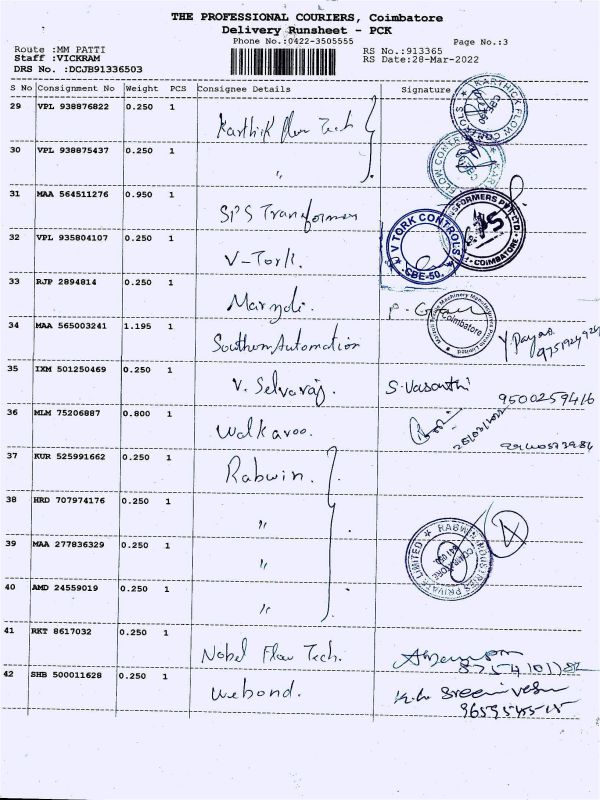 THE PROFESSIONAL COURIERS, Coimbatore
Delivery Runsheet - PCK
Phone No.:0422-3505555
Page No.:3
Route :MM PATTI
Staff :VICKRAM
DRS No. :DCJB91336503
RS No.:913365
RS Date:28-Mar-2022
S No Consignment No Weight PCS Consignee Details Signature
29 VPL 938876822 0.250 1 Karthik Flow Tech
30 VPL 938875437 0.250 1 "
31 MAA 564511276 0.950 1 SPS Transformer
32 VPL 935804107 0.250 1 V-Tork.
V TORK CONTROLS
CBE-50.
COIMBATORE
33 RJP 2894814 0.250 1
Coimbatore
34 MAA 565003241 1.195 1 Southern Automation
35 IXM 501250469 0.250 1 V. Selvaraj. S. Vasanthi
9500259416
36 MLM 75206887 0.800 1 Walkaroo.
37 KUR 525991662 0.250 1 Rabwin.
38 HRD 707974176 0.250 1 "
39 MAA 277836329 0.250 1 "
RABWIN INDUSTRIES PRIVATE LIMITED
40 AMD 24559019 0.250 1 "
41 RKT 8617032 0.250 1 Nobel Flow Tech.
42 SHB 500011628 0.250 1 Webond.